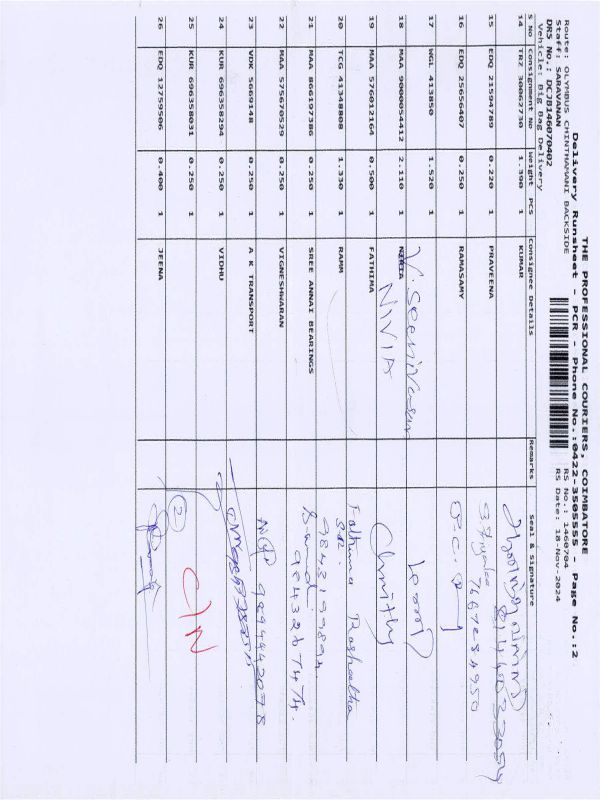 THE PROFESSIONAL COURIERS, COIMBATORE
Delivery Runsheet - PCR - Phone No.:0422-3505555 - Page No.:2
Route: OLYMBUS CHINTHAMANI BACKSIDE
RS No.: 1460704
Staff: SARAVANAN
RS Date: 18-Nov-2024
DRS No.: DCJB146070402
Vehicle: Big Bag Delivery
S No Consignment No Weight PCS Consignee Details Remarks Seal & Signature
14 TRZ 30062730 1.390 1 KUMAR
15 EDQ 21594789 0.220 1 PRAVEENA
7667234950
16 EDQ 25656407 0.250 1 RAMASAMY
17 WGL 413850 1.520 1
18 MAA 9000054412 2.110 1 NIVIA
NIVIA
19 MAA 576012164 0.500 1 FATHIMA
Fathima
20 TCG 41348808 1.330 1 RAMM
21 MAA 866197386 0.250 1 SREE ANNAI BEARINGS
22 MAA 575670529 0.250 1 VIGNESHWARAN
23 VDK 5669148 0.250 1 A K TRANSPORT
9894442078
24 KUR 696358294 0.250 1 VIDHU
25 KUR 696358031 0.250 1
2
C/N
26 EDQ 12759506 0.400 1 JEENA